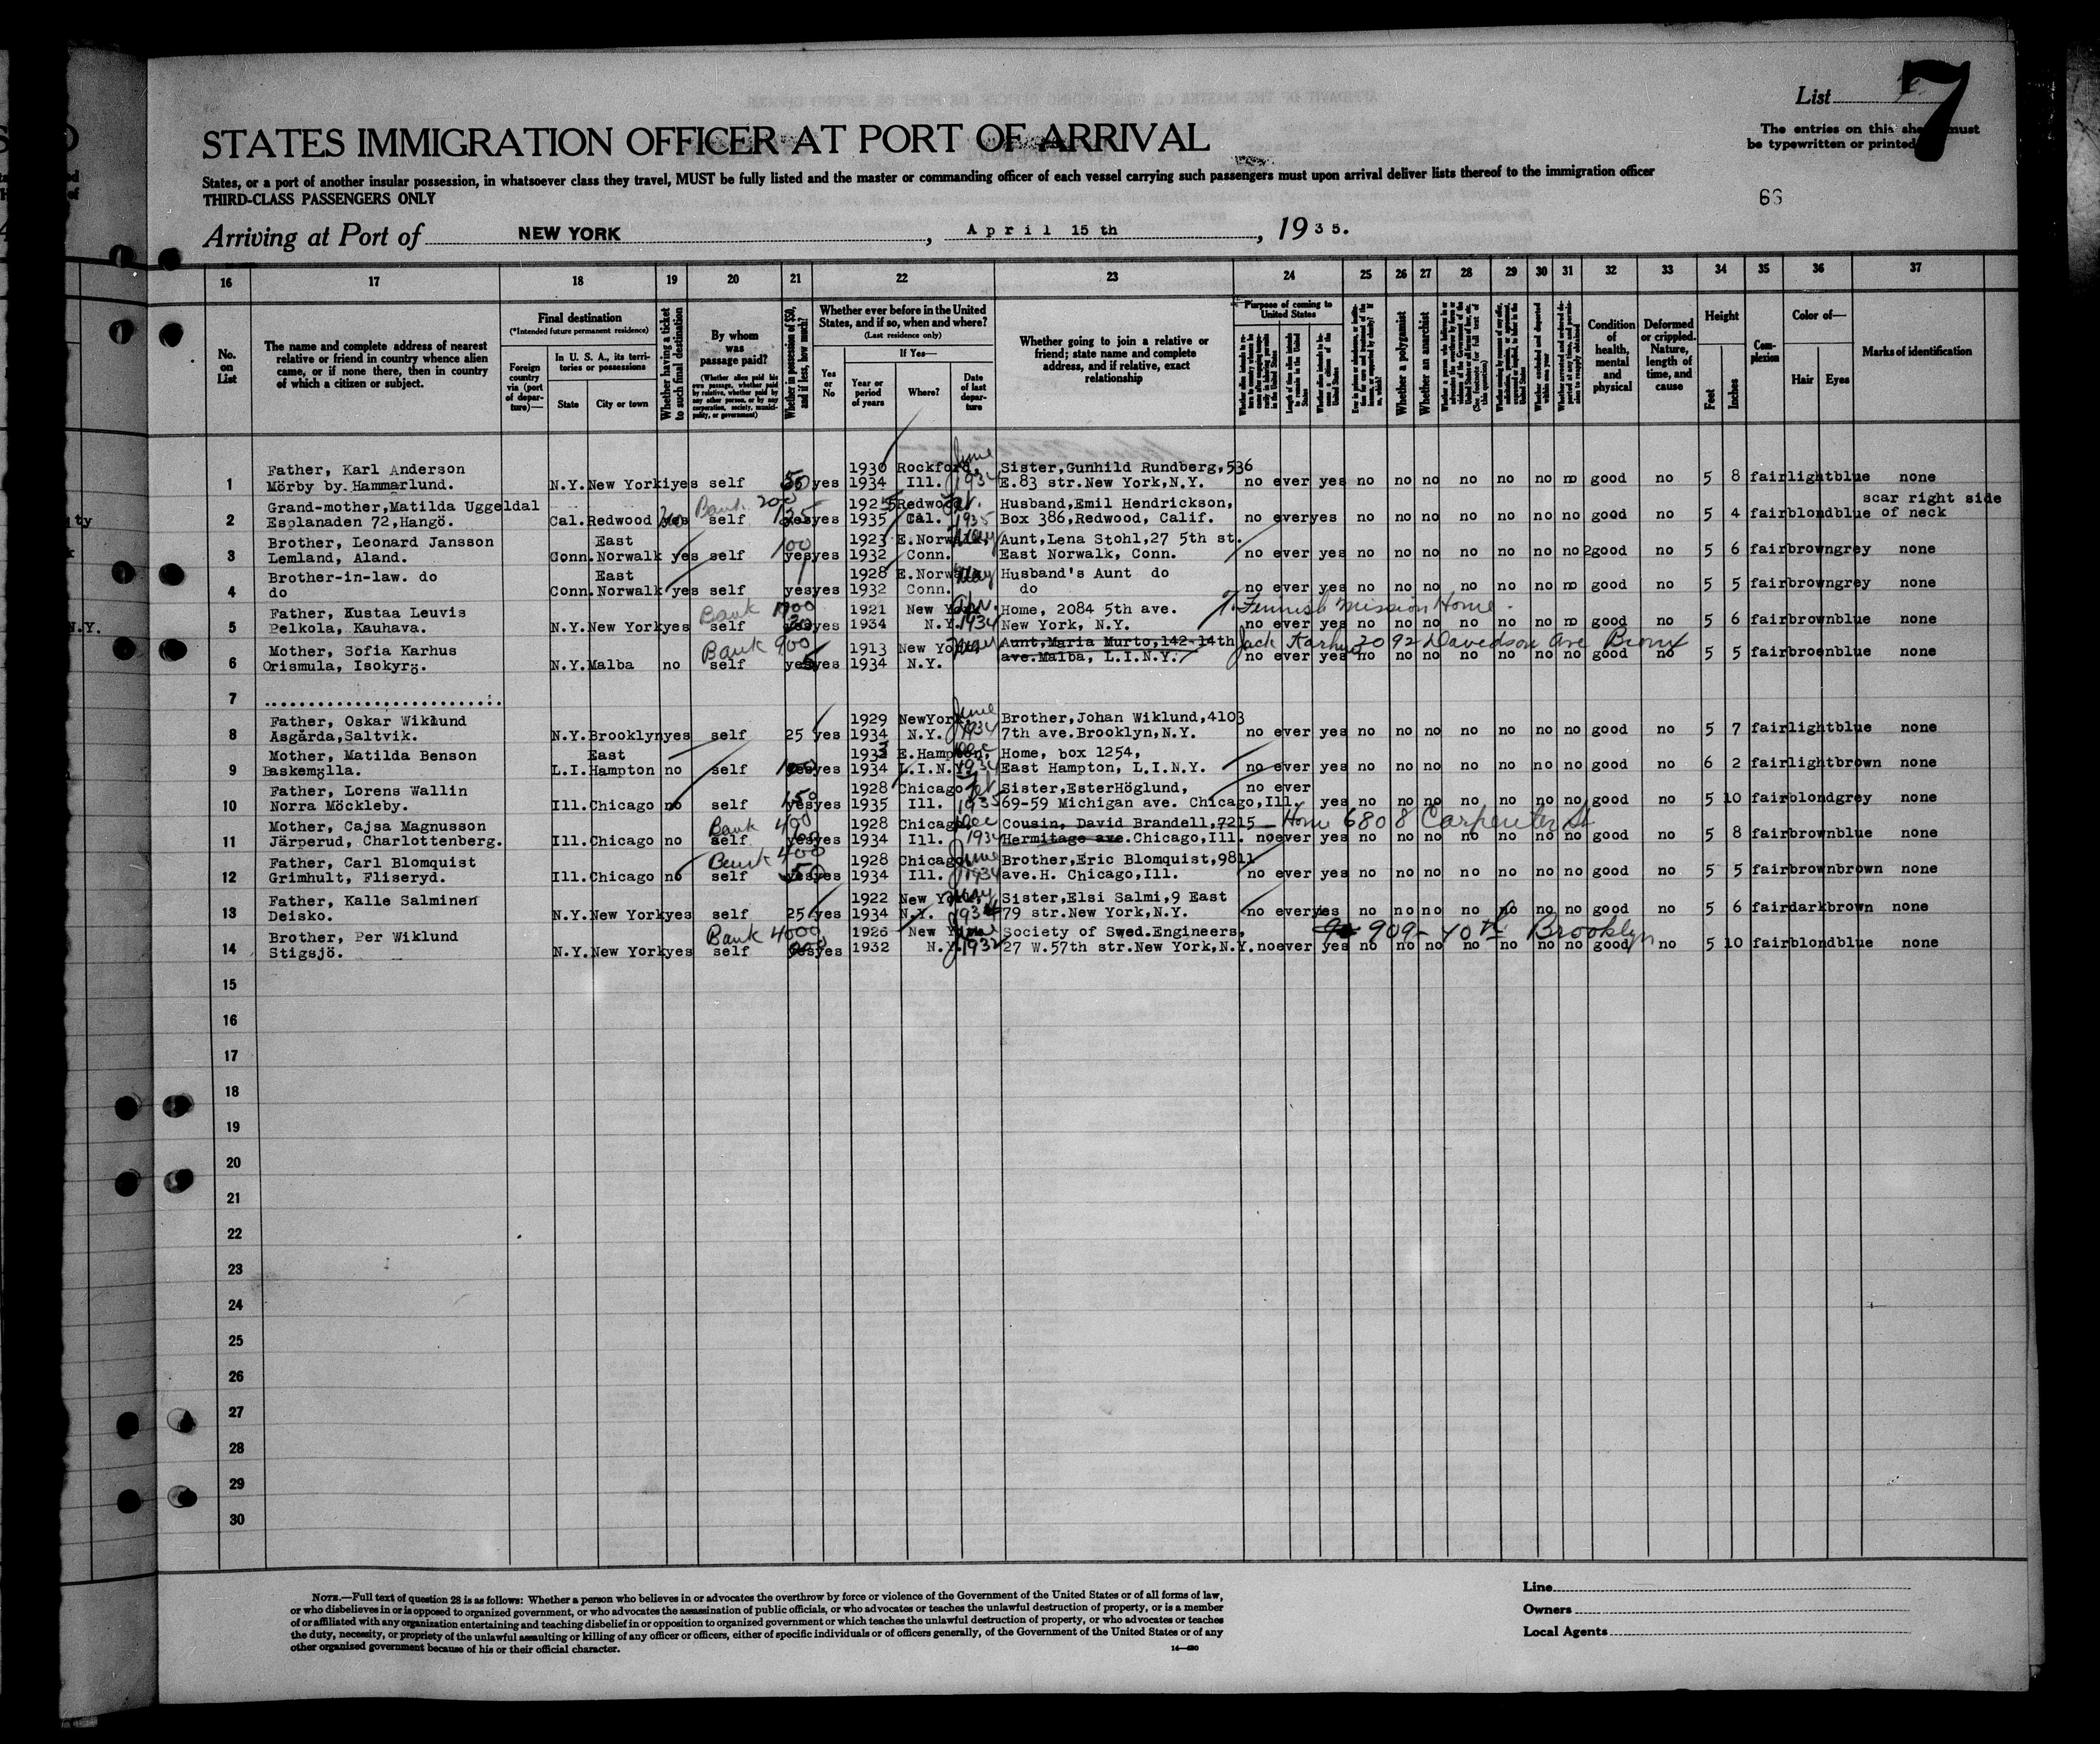 List 7
STATES IMMIGRATION OFFICER AT PORT OF ARRIVAL
The entries on this sheet must
be typewritten or printed
States, or a port of another insular possession, in whatsoever class they travel, MUST be fully listed and the master or commanding officer of each vessel carrying such passengers must upon arrival deliver lists thereof to the immigration officer
THIRD-CLASS PASSENGERS ONLY
66
Arriving at Port of NEW YORK, April 15 th, 1935.
16 17 18 19 20 21 22 23 24 25 26 27 28 29 30 31 32 33 34 35 36 37
No. on List
The name and complete address of nearest relative or friend in country whence alien came, or if none there, then in country of which a citizen or subject.
Final destination
(*Intended future permanent residence)
Foreign country via (port of departure)—
In U. S. A., its territories or possessions
State City or town
Whether having a ticket to such final destination
By whom was passage paid?
(Whether alien paid his own passage, whether paid by relative, whether paid by any other person, or by any corporation, society, municipality, or government)
Whether in possession of $50, and if less, how much?
Whether ever before in the United States, and if so, when and where?
(Last residence only)
Yes or No
If Yes—
Year or period of years Where? Date of last departure
Whether going to join a relative or friend; state name and complete address, and if relative, exact relationship
Purpose of coming to United States
Whether a polygamist
Whether an anarchist
Condition of health, mental and physical
Deformed or crippled. Nature, length of time, and cause
Height
Feet Inches
Complexion
Color of—
Hair Eyes
Marks of identification
Father, Karl Anderson 1930 Rockford, June Sister,Gunhild Rundberg,536
1 Mörby by.Hammarlund. N.Y. New York yes self 50 yes 1934 Ill. 1934 E.83 str.New York,N.Y. no ever yes no no no no no no no good no 5 8 fair light blue none
Grand-mother,Matilda Uggeldal Bank 200 1925 Redwood Husband,Emil Hendrickson, scar right side
2 Esplanaden 72,Hangö. Cal. Redwood self yes 1935 Cal. 1935 Box 386,Redwood, Calif. no ever yes no no no no no no no good no 5 4 fair blond blue of neck
Brother, Leonard Jansson East 100 1923 E.Norwalk, May Aunt,Lena Stohl,27 5th st.
3 Lemland, Aland. Conn. Norwalk yes self yes yes 1932 Conn. East Norwalk, Conn. no ever yes no no no no no no no good no 5 6 fair brown grey none
Brother-in-law. do East 1928 E.Norwalk May Husband's Aunt do
4 do Conn. Norwalk yes self yes yes 1932 Conn. do no ever yes no no no no no no no good no 5 5 fair brown grey none
Father, Kustaa Leuvis Bank 1921 New York Home, 2084 5th ave. % Finnish Mission Home.
5 Pelkola, Kauhava. N.Y. New York yes self yes 1934 N.Y. 1934 New York, N.Y. no ever yes no no no no no no no good no 5 6 fair brown blue none
Mother, Sofia Karhus Bank 900 1913 New York Aunt,Maria Murto,142-14th Jack Karhu 2092 Davidson Ave Bronx
6 Orismula, Isokyrö. N.Y. Malba no self yes yes 1934 N.Y. ave.Malba, L.I.N.Y. no ever yes no no no no no no no good no 5 5 fair broen blue none
7 ..........................
Father, Oskar Wiklund 1929 NewYork, June Brother,Johan Wiklund,4103
8 Asgårda,Saltvik. N.Y. Brooklyn yes self 25 yes 1934 N.Y. 1934 7th ave.Brooklyn,N.Y. no ever yes no no no no no no no good no 5 7 fair light blue none
Mother, Matilda Benson East 1933 E.Hampton, Dec Home, box 1254,
9 Baskemölla. L.I. Hampton no self yes 1934 L.I.N.Y. 1934 East Hampton, L.I.N.Y. no ever yes no no no no no no no good no 6 2 fair light brown none
Father, Lorens Wallin 150 1928 Chicago Feb Sister,EsterHöglund, no ever
10 Norra Möckleby. Ill. Chicago no self yes yes 1935 Ill. 1935 69-59 Michigan ave. Chicago,Ill. yes no no no no no no no good no 5 10 fair blond grey none
Mother, Cajsa Magnusson Bank 400 1928 Chicago Dec Cousin, David Brandell,7215 Home 6808 Carpenter St
11 Järperud, Charlottenberg. Ill. Chicago no self yes 1934 Ill. 1934 Hermitage ave.Chicago,Ill. no ever yes no no no no no no no good no 5 8 fair brown blue none
Father, Carl Blomquist Bank 400 1928 Chicago June Brother,Eric Blomquist,9811
12 Grimhult, Fliseryd. Ill. Chicago no self 50 yes 1934 Ill. 1934 ave.H. Chicago,Ill. no ever yes no no no no no no no good no 5 5 fair brown brown none
Father, Kalle Salminen 1922 New York May Sister,Elsi Salmi,9 East
13 Deisko. N.Y. New York yes self 25 yes 1934 N.Y. 1934 79 str.New York,N.Y. no ever yes no no no no no no no good no 5 6 fair dark brown none
Brother, Per Wiklund Bank 4000 1926 New York June Society of Swed.Engineers, 909-40th Brooklyn
14 Stigsjö. N.Y. New York yes self yes 1932 N.Y. 1932 27 W.57th str.New York,N.Y. no ever yes no no no no no no no good no 5 10 fair blond blue none
15
16
17
18
19
20
21
22
23
24
25
26
27
28
29
30
NOTE.—Full text of question 28 is as follows: Whether a person who believes in or advocates the overthrow by force or violence of the Government of the United States or of all forms of law,
or who disbelieves in or is opposed to organized government, or who advocates the assassination of public officials, or who advocates or teaches the unlawful destruction of property, or is a member
of or affiliated with any organization entertaining and teaching disbelief in or opposition to organized government or which teaches the unlawful destruction of property, or who advocates or teaches
the duty, necessity, or propriety of the unlawful assaulting or killing of any officer or officers, either of specific individuals or of officers generally, of the Government of the United States or of any
other organized government because of his or their official character.
Line
Owners
Local Agents